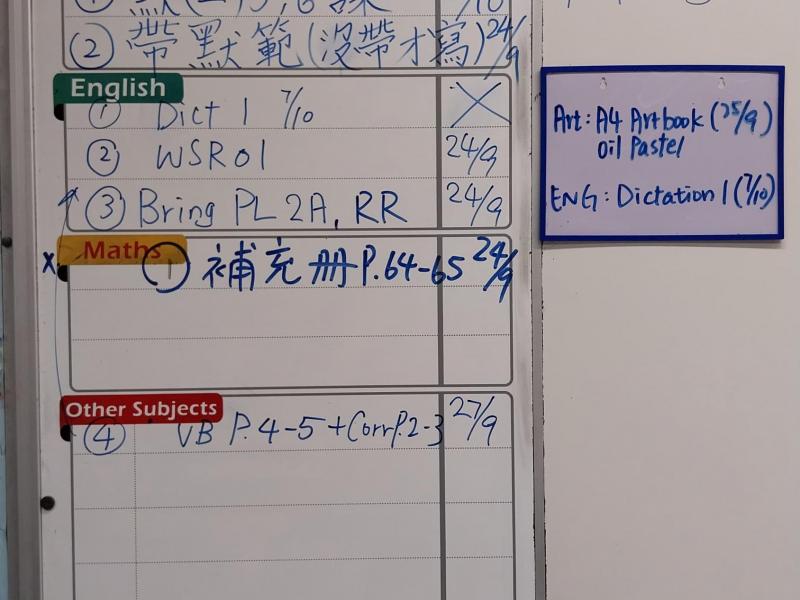 ② 帶默範(沒帶才寫) 24/9
English
① Dict 1 7/10
② WSR01 24/9
③ Bring PL 2A, RR 24/9
Maths
① 補充册 P.64-65 24/9
Other Subjects
④ VB P.4-5 + Corr P.2-3 27/9
Art: A4 Artbook (25/9)
Oil Pastel
ENG: Dictation 1 (7/10)